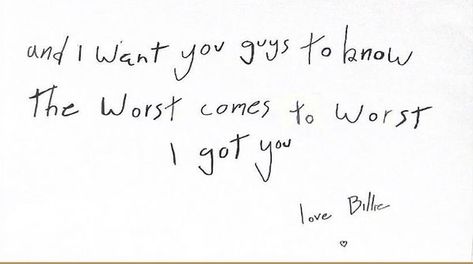 and I want you guys to know
the worst comes to worst
I got you
love Billie
♡